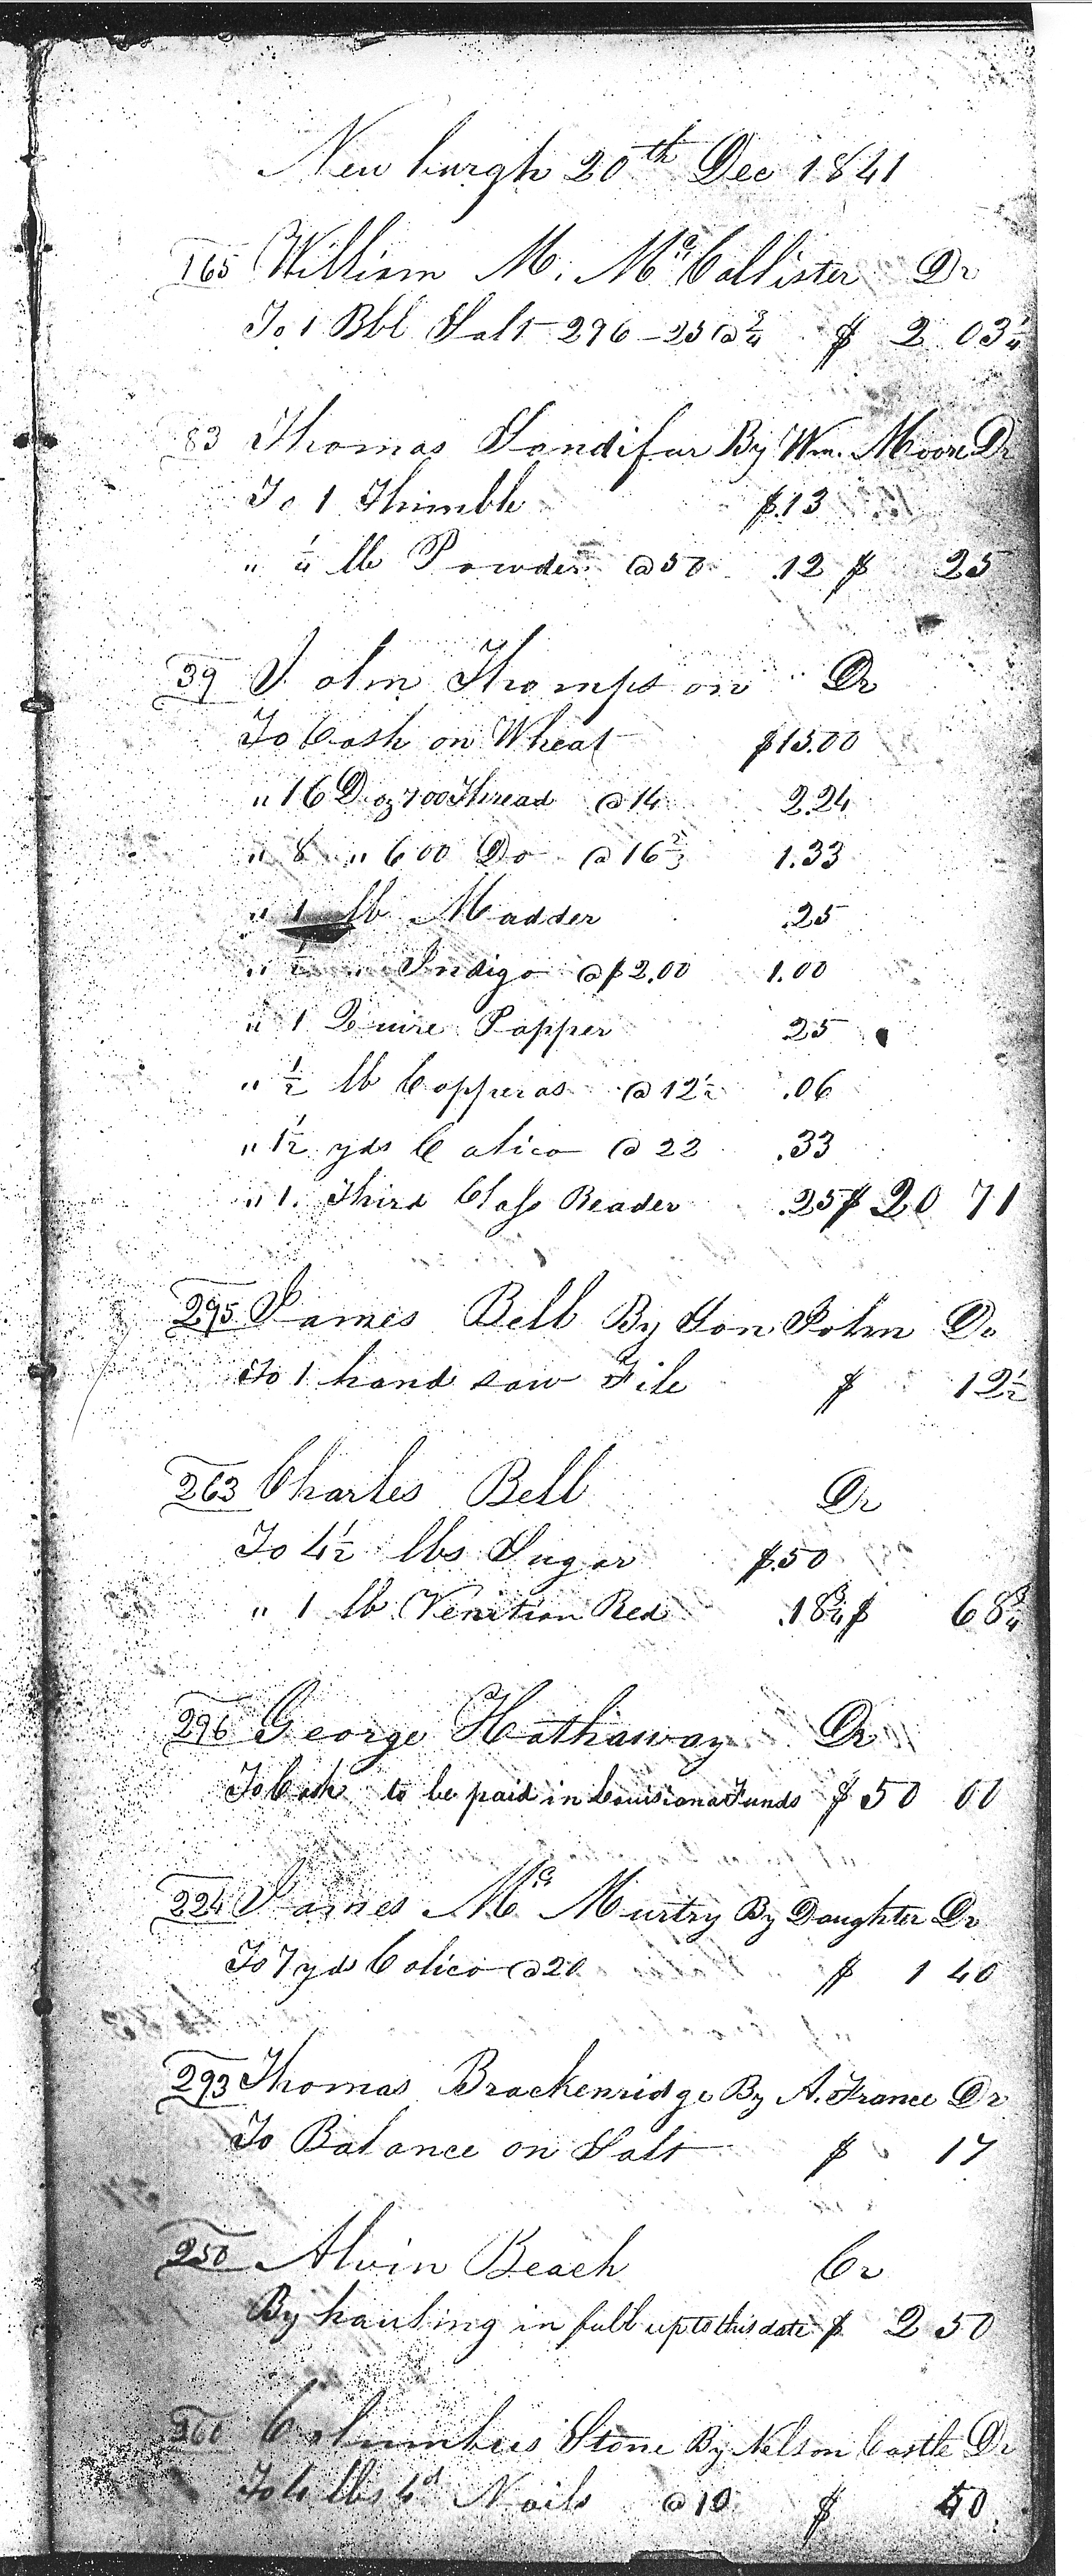 Newburgh 20th Dec 1841
165 William M. McCollister Dr
To 1 Bbl Salt 296-25 @ 3/4 $ 2 03 1/4
83 Thomas Sandifur By Wm. Moore Dr
To 1 Thimble $.13
" 1/4 lb Powder @ 50 .12 $ 25
39 John Thompson Dr
To Cash on Wheat $15.00
" 16 Doz 700 Thread @ 14 2.24
" 8 " 600 Do @ 16 2/3 1.33
" 1 lb Madder .25
" 1/2 " Indigo @ $2.00 1.00
" 1 Quire Papper 25
" 1/2 lb Copperas @ 12 1/2 .06
" 1 1/2 yds Calico @ 22 .33
" 1. Third Class Reader .25 $ 20 71
295 James Bell By Son John Dr
To 1 hand saw File $ 12 1/2
263 Charles Bell Dr
To 4 1/2 lbs Sugar $.50
" 1 lb Venition Red .18 3/4 $ 68 3/4
296 George Hathaway Dr
To Cash to be paid in Louisiana Funds $ 50 00
224 James Mc Murtry By Daughter Dr
To 7 yds Calico @ 20 $ 1 40
293 Thomas Brackenridge By A. France Dr
To Balance on Salt $ 17
250 Alvin Beach Cr
By hauling in full up to this date $ 2 50
260 Columbus Stone By Nelson Castle Dr
To 4 lbs 4d Nails @ 10 $ 40